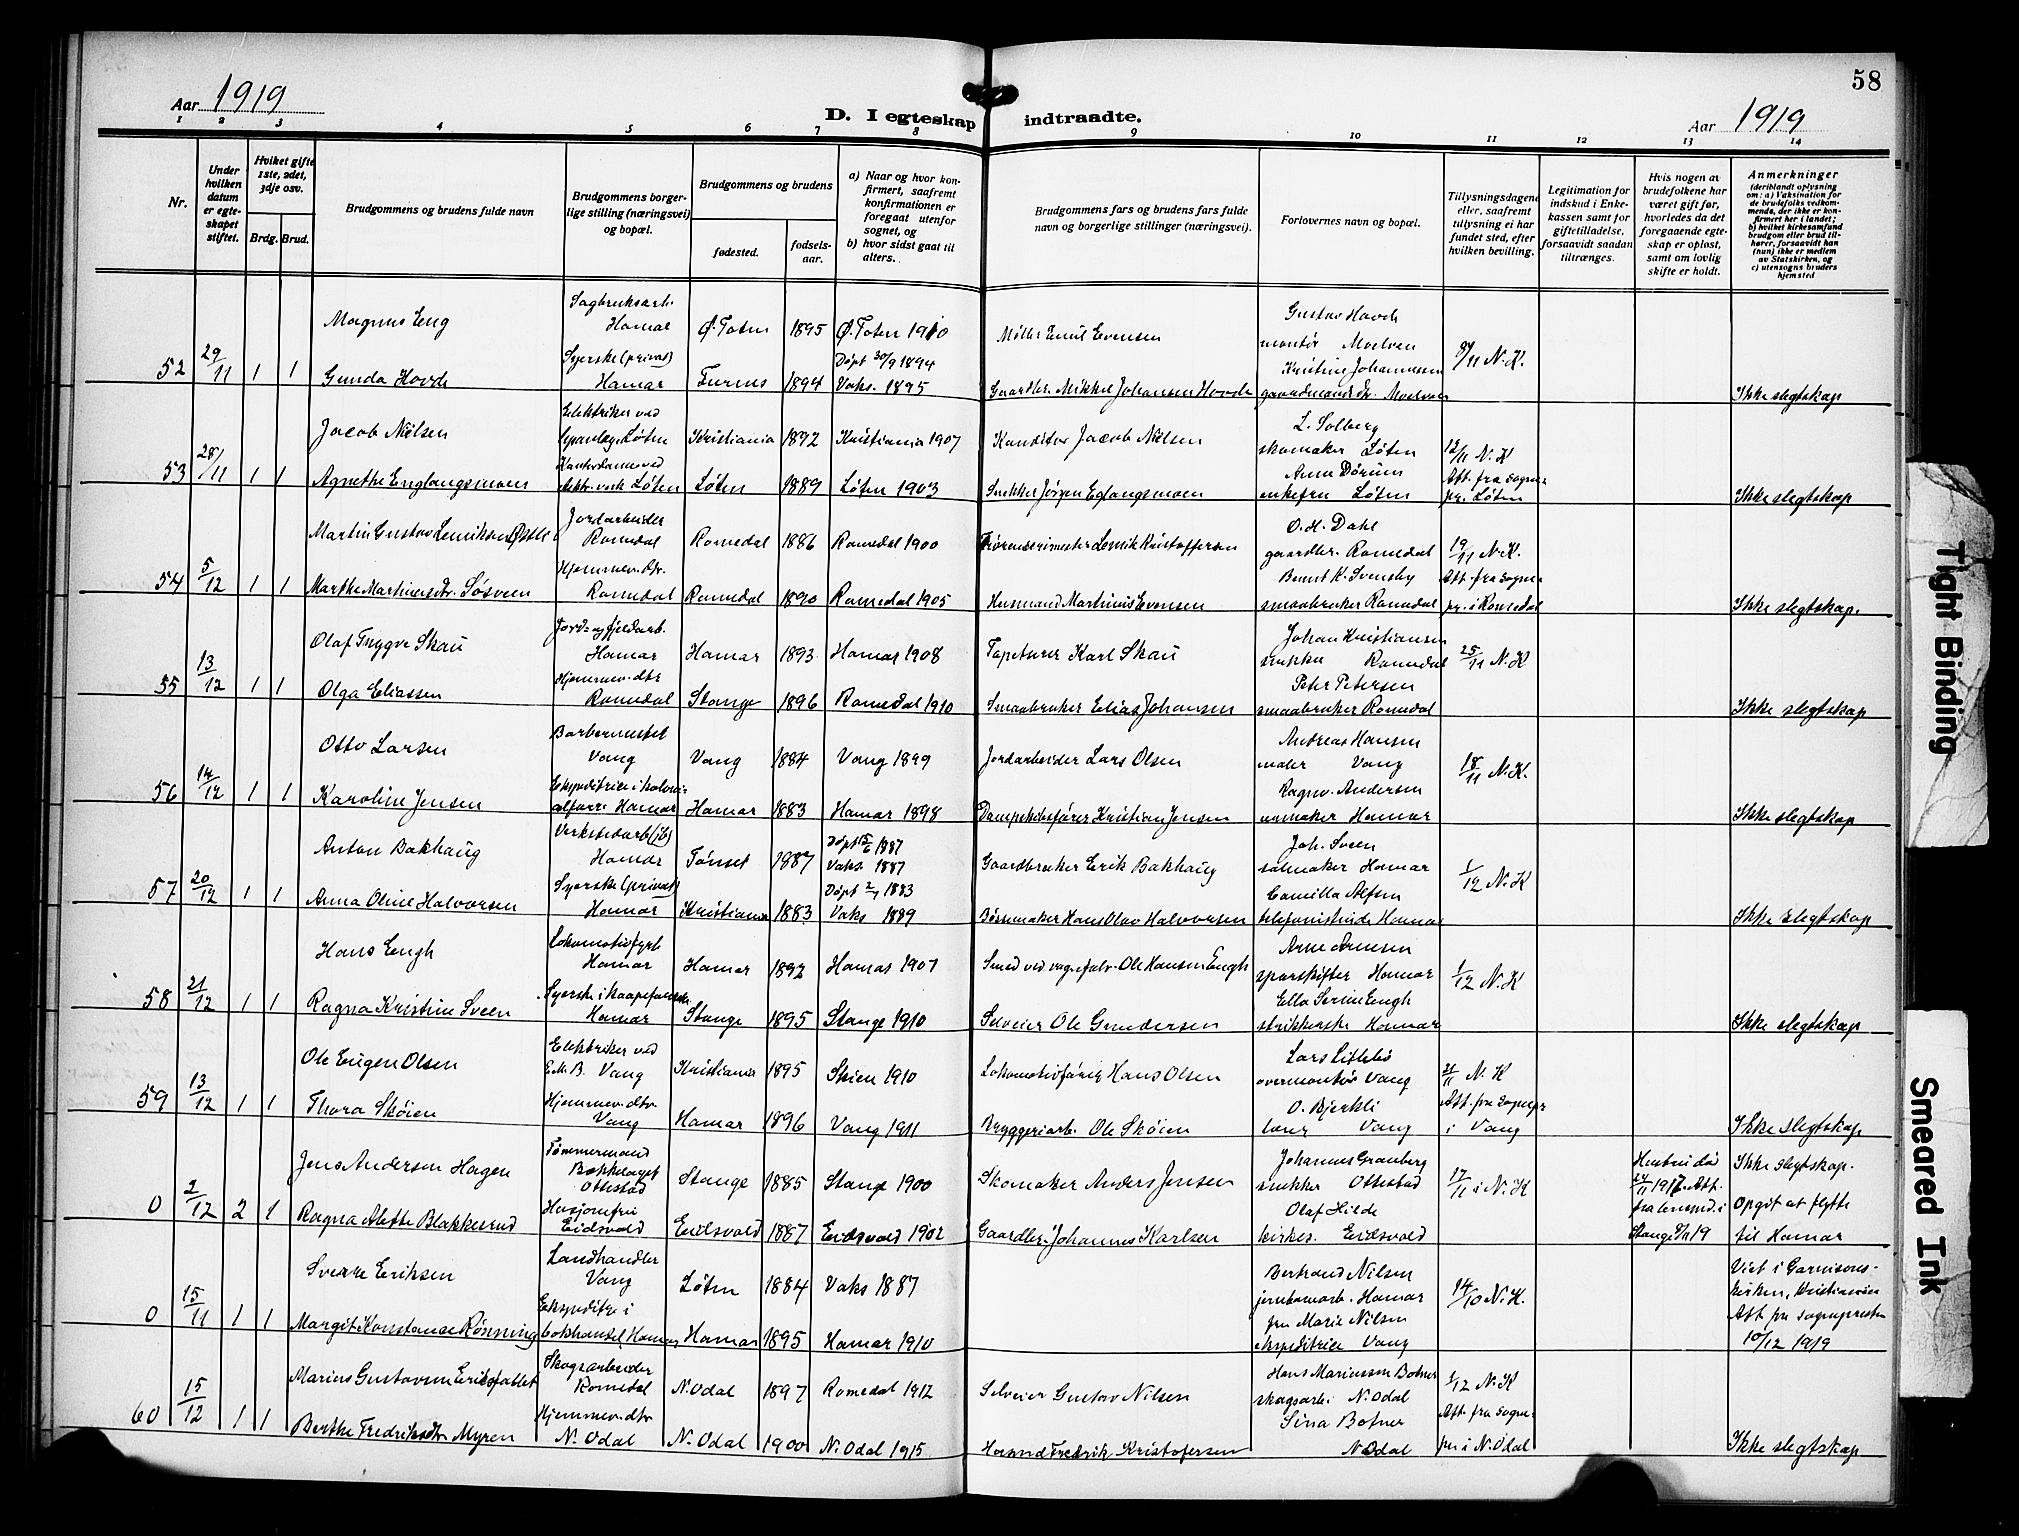 58
Aar 1919
D. I egteskap indtraadte.
Aar 1919
1 2 3 4 5 6 7 8 9 10 11 12 13 14
Nr.
Under hvilken datum er egteskapet stiftet.
Hvilket gifte 1ste, 2det, 3dje osv.
Brdg. Brud.
Brudgommens og brudens fulde navn
Brudgommens borgerlige stilling (næringsvei) og bopæl.
Brudgommens og brudens
fødested.
fødselsaar.
a) Naar og hvor konfirmert, saafremt konfirmationen er foregaat utenfor sognet, og
b) hvor sidst gaat til alters.
Brudgommens fars og brudens fars fulde navn og borgerlige stillinger (næringsvei).
Forlovernes navn og bopæl.
Tillysningsdagene eller, saafremt tillysning ei har fundet sted, efter hvilken bevilling.
Legitimation for indskud i Enkekassen samt for giftetilladelse, forsaavidt saadan tiltrænges.
Hvis nogen av brudefolkene har været gift før, hvorledes da det foregaaende egteskap er opløst, samt om lovlig skifte er holdt.
Anmerkninger
(deriblandt oplysning om: a) Vaksination for de brudefolks vedkommende, der ikke er konfirmert her i landet; b) hvilket kirkesamfund brudgom eller brud tilhører, forsaavidt han (hun) ikke er medlem av Statskirken, og c) utensogns bruders hjemsted
52 29/11 1 1
Magnus Eng Sagbruksarb. Hamar Ø. Toten 1895 Ø. Toten 1910 Møller Emil Evensen Gustav Hovde montør Moelven 9/11 N.K.
Gunda Hovde Syerske (privat) Hamar Furnes 1894 Døpt 30/9 1894 Vaks. 1895 Gaardbr. Mikkel Johansen Hovde Kristine Johannessen Moelven Ikke slegtskap
53 28/11 1 1
Jacob Nielsen Elektriker ved Løten Kristiania 1892 Kristiania 1907 Konditor Jacob Nielsen L. Solberg skomaker Løten 12/11 N.K
Agnethe Englangsmoen Kontordame ved elektr. verk Løten Løten 1889 Løten 1903 Snekker Jørgen Eglangsmoen Anne Dørum enkefru Løten Att. fra sognepr. i Løten Ikke slegtskap
54 5/12 1 1
Martin Gustav Jordarbeider Romedal Romedal 1886 Romedal 1900 Kristoffersen O. H. Dahl gaardbr. Romedal 19/11 N.K.
Marthe Martinusdtr. Søsveen Hjemmev. dtr. Romedal Romedal 1890 Romedal 1905 Husmand Martinus Evensen Bernt K. Svensby smaabruker Romedal Att. fra sognepr. i Romedal Ikke slegtskap.
55 13/12 1 1
Olaf Trygve Skau Jord- og fjeldarb. Hamar Hamar 1893 Hamar 1908 Tapetserer Karl Skau Johan Kristiansen snekker Romedal 25/11 N.K
Olga Eliassen Hjemmev. dtr Romedal Stange 1896 Romedal 1910 Smaabruker Elias Johansen Peter Petersen smaabruker Romedal Ikke slegtskap
56 14/12 1 1
Otto Larsen Barbermester Vang Vang 1884 Vang 1899 Jordarbeider Lars Olsen Andreas Hansen maler Vang 18/11 N.K.
Karoline Jensen Ekspeditrice i Hamar Hamar 1883 Hamar 1898 Dampskibsfører Kristian Jensen Ragnv. Andersen urmaker Hamar Ikke slegtskap
57 20/12 1 1
Anton Bakhaug Verkstedarb (jb) Hamar Tønset 1887 Døpt 1887 Vaks. 1887 Gaardbruker Erik Bakhaug Joh. Sveen salmaker Hamar 1/12 N.K
Anna Oline Halvorsen Syerske (privat) Hamar Kristiania 1883 Døpt 1883 Vaks 1889 Børsemaker Hans Olav Halvorsen Camilla Alfsen telefonistinde Hamar Ikke slegtskap
58 21/12 1 1
Hans Engh Lokomotivfyrb Hamar Hamar 1892 Hamar 1907 Smed ved vognfabr. Ole Hansen Engh Arne Arnesen sporskifter Hamar 1/12 N.K
Ragna Kristine Sveen Syerske i Hamar Stange 1895 Stange 1910 Selveier Ole Gundersen Ella Serine Engh strikkerske Hamar Ikke slegtskap
59 13/12 1 1
Ole Eugen Olsen Elektriker ved E.M.B. Vang Kristiania 1895 Skien 1910 Lokomotivfører Hans Olsen Lars Lillebo overmontør Vang 21/11 N.K
Thora Skøien Hjemmev. dtr Vang Hamar 1896 Vang 1911 Bryggeriarb. Ole Skøien O. Bjerkli Vang Att. fra sognepr i Vang Ikke slegtskap
0 2/12 2 1
Jens Andersen Hagen Tømmermand Bækkelaget Ottestad Stange 1885 Stange 1900 Skomaker Anders Jensen Johannes Granberg snekker Ottestad 17/11 i N.K Hustru død 1917. Att. fra lensmd. i Stange 19 Ikke slegtskap. Opgit at flytte til Hamar
Ragna Alette Blakkesrud Eidsvold Eidsvold 1887 Eidsvold 1902 Gaardbr. Johannes Karlsen Olaf Hilde kirkes. Eidsvold
0 15/11 1 1
Sverre Eriksen Landhandler Vang Løten 1884 Vaks 1887 Bertrand Nilsen jernbanearb. Hamar 14/10 N.K. Viet i Garnisonskirken, Kristiania Att fra sognepresten 10/12 1919
Margit Konstance Rønning Ekspeditr. i bokhandel, Hamar Hamar 1895 Hamar 1910 fru Marie Nilsen ekspeditrice Vang
60 15/12 1 1
Marius Gustavsen Skogsarbeider Romedal N. Odal 1897 Romedal 1912 Selveier Gustav Nilsen Hans Mariussen Botner skogsarb. N. Odal 1/12 N.K
Berthe Fredriksdtr Myren Hjemmev. dtr N. Odal N. Odal 1900 N. Odal 1915 Husmnd Fredrik Kristofersen Sina Botner N. Odal Att. fra sognepr. i N. Odal Ikke slegtskap
Tight Binding
Smeared Ink